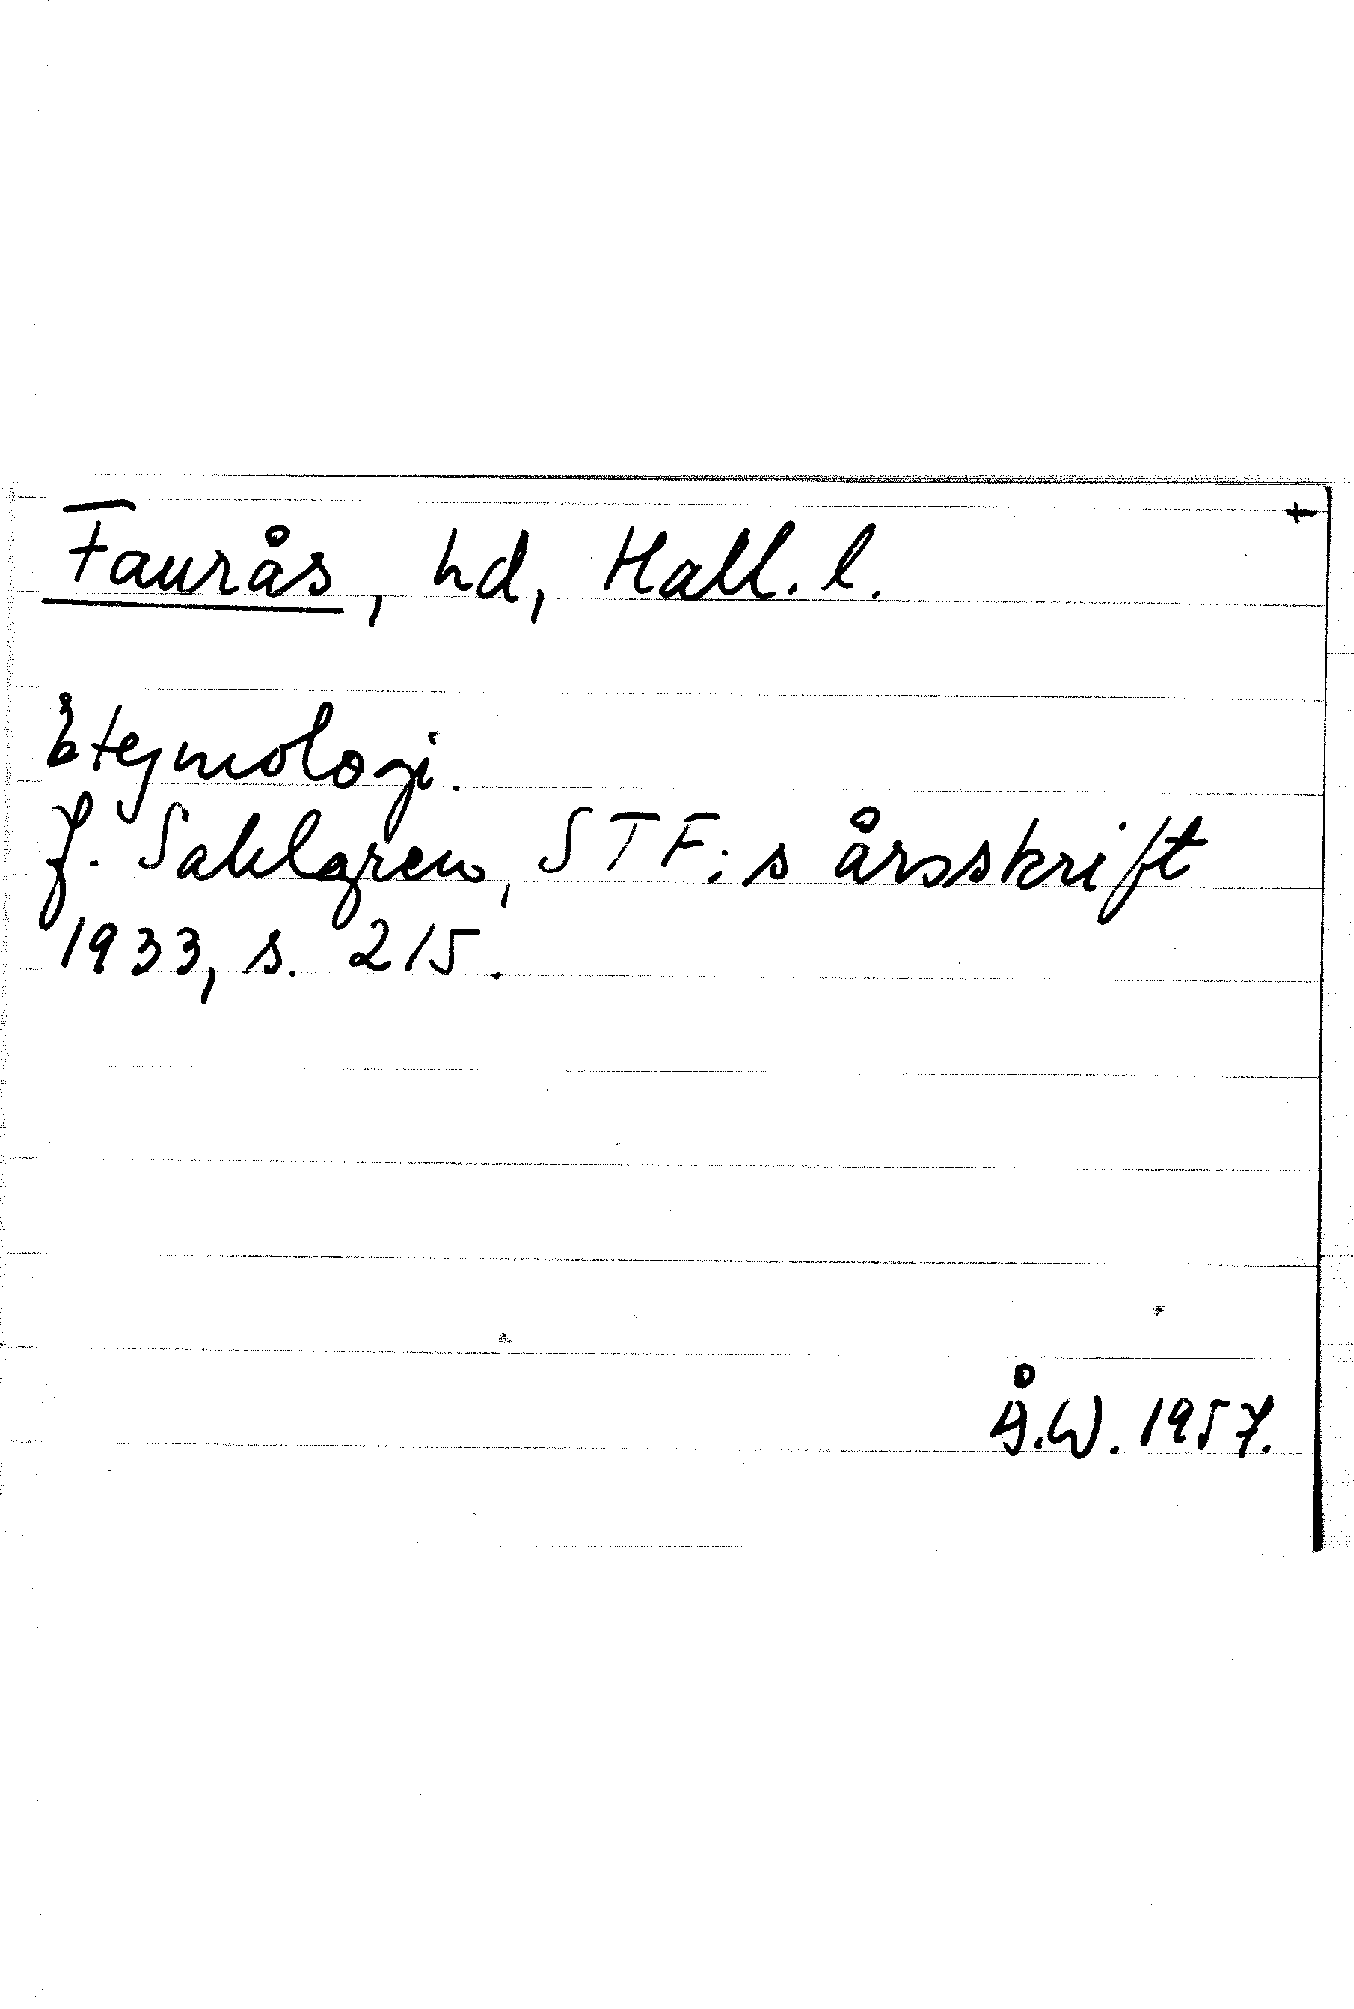 Faurås, hd, Hall. l. +
Etymologi.
J. Sahlgren, STF:s årsskrift
1933, s. 215.
Å.W. 1957.